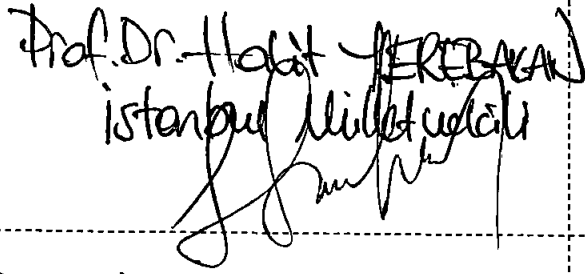 Prof.Dr. Halit YEREBAKAN
İstanbul Milletvekili